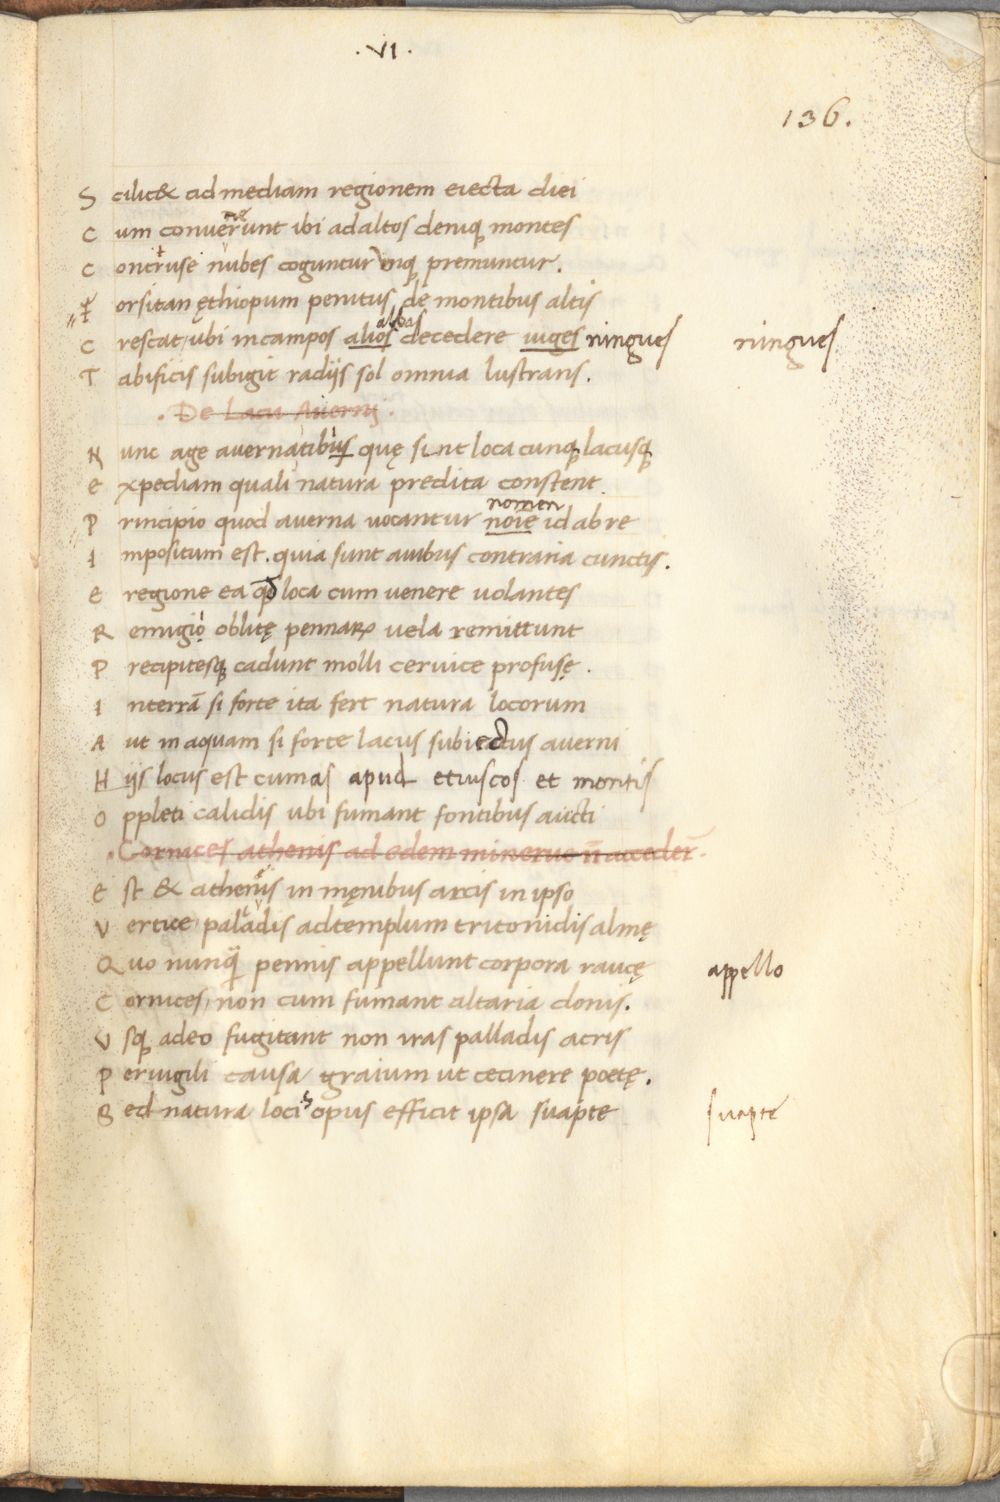 .VI.
136.
S cilicet & ad mediam regionem eiecta diei
C um converunt ibi ad altos deniq montes
C ontruse nubes coguntur viq premuntur.
F orsitan ęthiopum penitus de montibus altis
albas
C rescat, ubi in campos alios decedere iuges ningues ningues
T abificis subigit radijs sol omnia lustrans.
. De Lacu Averni .
N unc age avernatibus quę sint loca cunq lacusq
E xpediam quali natura predita constent.
nomen
P rincipio quod averna vocantur noie id ab re
I mpositum est. quia sunt avibus contraria cunctis.
E regione ea qd loca cum venere volantes
R emigio oblitę pennarꝝ vela remittunt
P recipitesq cadunt molli cervice profusę.
I nterrā si forte ita fert natura locorum
A ut in aquam si forte lacus subiectus averni
H ijs locus est cumas apud etruscos et montis
O ppleti calidis ubi fumant fontibus aucti
. Cornices athenis ad edem minerve n̄ acceder̄.
E st & athenis in męnibus arcis in ipso
V ertice palladis ad templum tritonidis almę
Q uo nunq̄ pennis appellunt corpora raucę appello
C ornices, non cum fumant altaria donis.
V sq adeo fugitant non iras palladis acris
P ervigili causa graium ut cecinere poetę.
S ed natura loci opus efficit ipsa suapte suapte